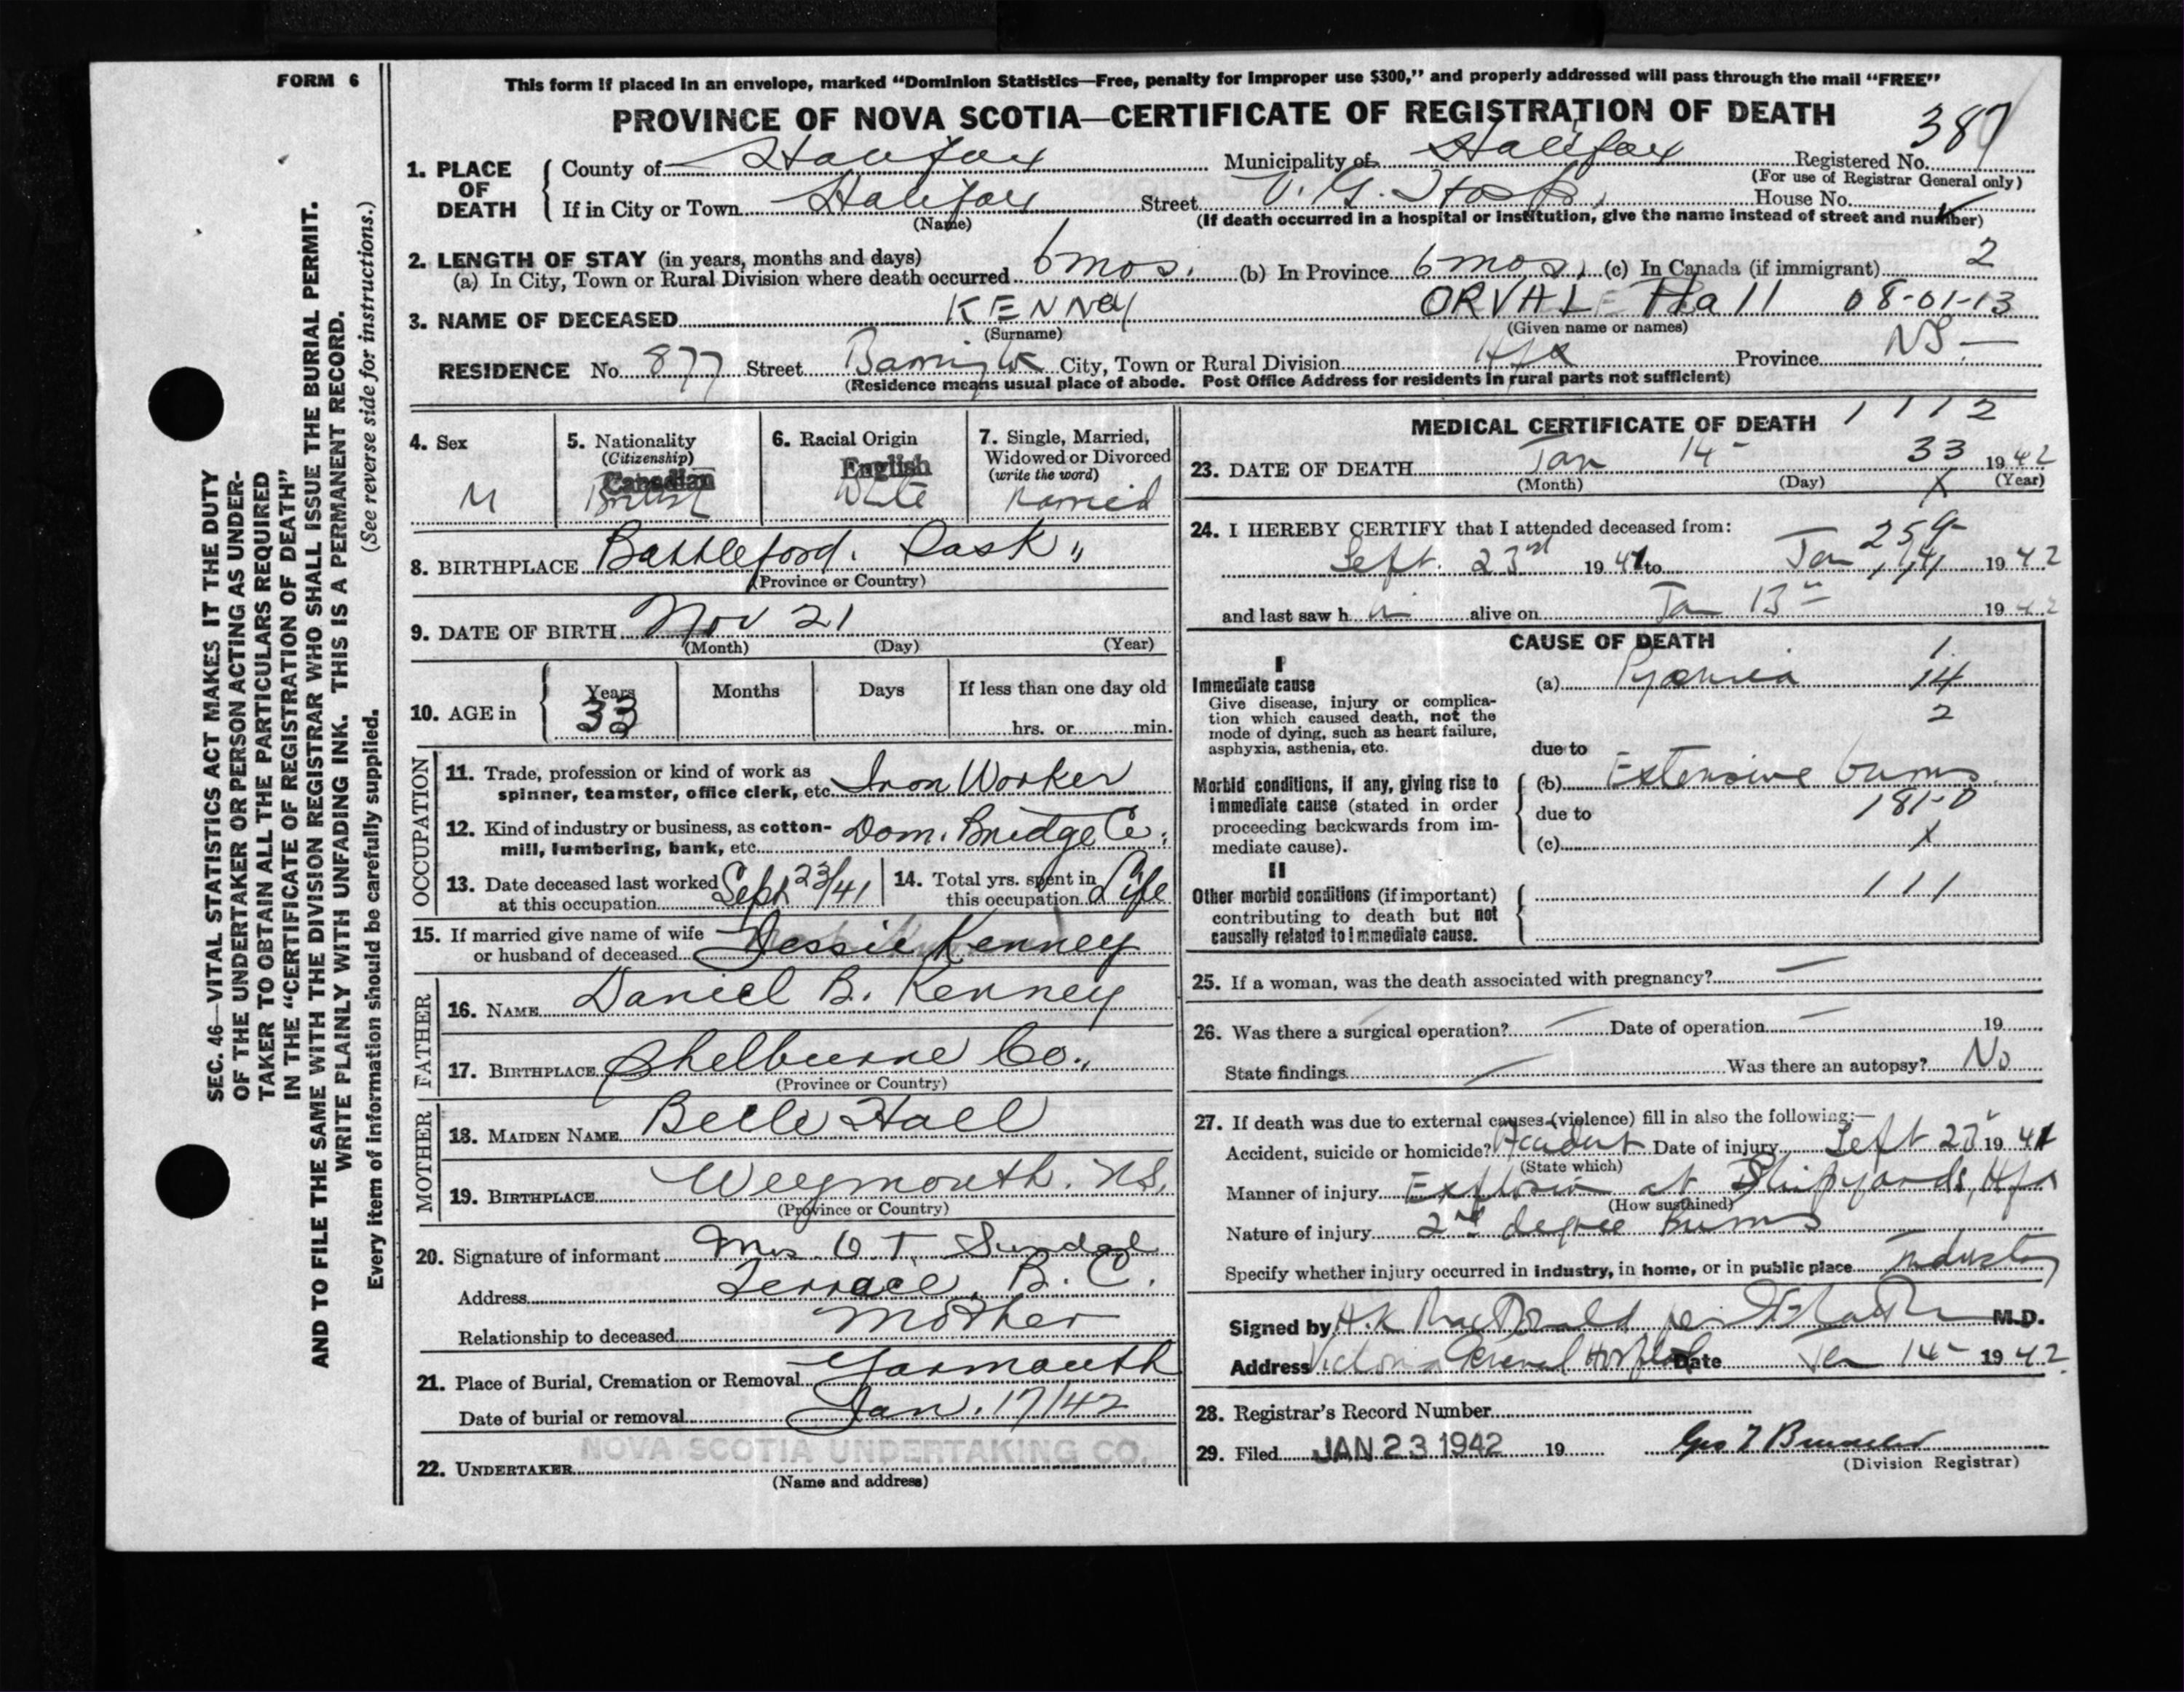 FORM 6
This form if placed in an envelope, marked “Dominion Statistics—Free, penalty for improper use $300,” and properly addressed will pass through the mail “FREE”
PROVINCE OF NOVA SCOTIA—CERTIFICATE OF REGISTRATION OF DEATH
387
1. PLACE OF DEATH
County of Halifax Municipality of Halifax Registered No.
(For use of Registrar General only)
If in City or Town Halifax Street V. G. Hosp. House No.
(Name) (If death occurred in a hospital or institution, give the name instead of street and number)
2. LENGTH OF STAY (in years, months and days)
(a) In City, Town or Rural Division where death occurred 6 mos. (b) In Province 6 mos. (c) In Canada (if immigrant) 2
3. NAME OF DECEASED KENNEY ORVAL Hall 08-01-13
(Surname) (Given name or names)
RESIDENCE No. 877 Street Barrington City, Town or Rural Division Hfx Province NS.—
(Residence means usual place of abode. Post Office Address for residents in rural parts not sufficient)
4. Sex
M
5. Nationality
(Citizenship)
Canadian
British
6. Racial Origin
English
White
7. Single, Married, Widowed or Divorced
(write the word)
Married
8. BIRTHPLACE Battleford. Sask,,
(Province or Country)
9. DATE OF BIRTH Nov 21
(Month) (Day) (Year)
10. AGE in
Years Months Days If less than one day old
33 hrs. or min.
OCCUPATION
11. Trade, profession or kind of work as
spinner, teamster, office clerk, etc. Iron Worker
12. Kind of industry or business, as cotton-
mill, lumbering, bank, etc. Dom. Bridge Co.
13. Date deceased last worked
at this occupation Sept 23/41
14. Total yrs. spent in
this occupation Life
15. If married give name of wife
or husband of deceased Jessie Kenney
FATHER
16. NAME Daniel B. Kenney
17. BIRTHPLACE Shelburne Co.,
(Province or Country)
MOTHER
18. MAIDEN NAME Belle Hall
19. BIRTHPLACE Weymouth. NS.
(Province or Country)
20. Signature of informant Mrs. O T. Sundal
Address Terrace, B. C.
Relationship to deceased Mother
21. Place of Burial, Cremation or Removal Yarmouth
Date of burial or removal Jan. 17/42
NOVA SCOTIA UNDERTAKING CO.
22. UNDERTAKER
(Name and address)
MEDICAL CERTIFICATE OF DEATH 1112
23. DATE OF DEATH Jan 14 - 33 1942
(Month) (Day) X (Year)
24. I HEREBY CERTIFY that I attended deceased from:
259
Sept. 23rd 1941 to Jan 14 1942
and last saw h im alive on Jan 13 1942
CAUSE OF DEATH
I
Immediate cause
Give disease, injury or complica-
tion which caused death, not the
mode of dying, such as heart failure,
asphyxia, asthenia, etc.
(a) Pyemia
1
14
2
due to
Morbid conditions, if any, giving rise to
immediate cause (stated in order
proceeding backwards from im-
mediate cause).
(b) Extensive burns.
due to 181-0
(c) X
II
Other morbid conditions (if important)
contributing to death but not
causally related to immediate cause.
111
25. If a woman, was the death associated with pregnancy? —
26. Was there a surgical operation? — Date of operation — 19
State findings — Was there an autopsy? No
27. If death was due to external causes (violence) fill in also the following:—
Accident, suicide or homicide? Accident Date of injury Sept 23 1941
(State which)
Manner of injury Explosion at Shipyards, Hfx
(How sustained)
Nature of injury 2nd degree Burns
Specify whether injury occurred in industry, in home, or in public place Industry
Signed by H.K MacDonald per M.D.
Address Victoria General Hospital Date Jan 14 - 1942
28. Registrar's Record Number
29. Filed JAN 23 1942 19
(Division Registrar)
SEC. 46—VITAL STATISTICS ACT MAKES IT THE DUTY
OF THE UNDERTAKER OR PERSON ACTING AS UNDER-
TAKER TO OBTAIN ALL THE PARTICULARS REQUIRED
IN THE “CERTIFICATE OF REGISTRATION OF DEATH”
AND TO FILE THE SAME WITH THE DIVISION REGISTRAR WHO SHALL ISSUE THE BURIAL PERMIT.
WRITE PLAINLY WITH UNFADING INK. THIS IS A PERMANENT RECORD.
(See reverse side for instructions.)
Every item of information should be carefully supplied.